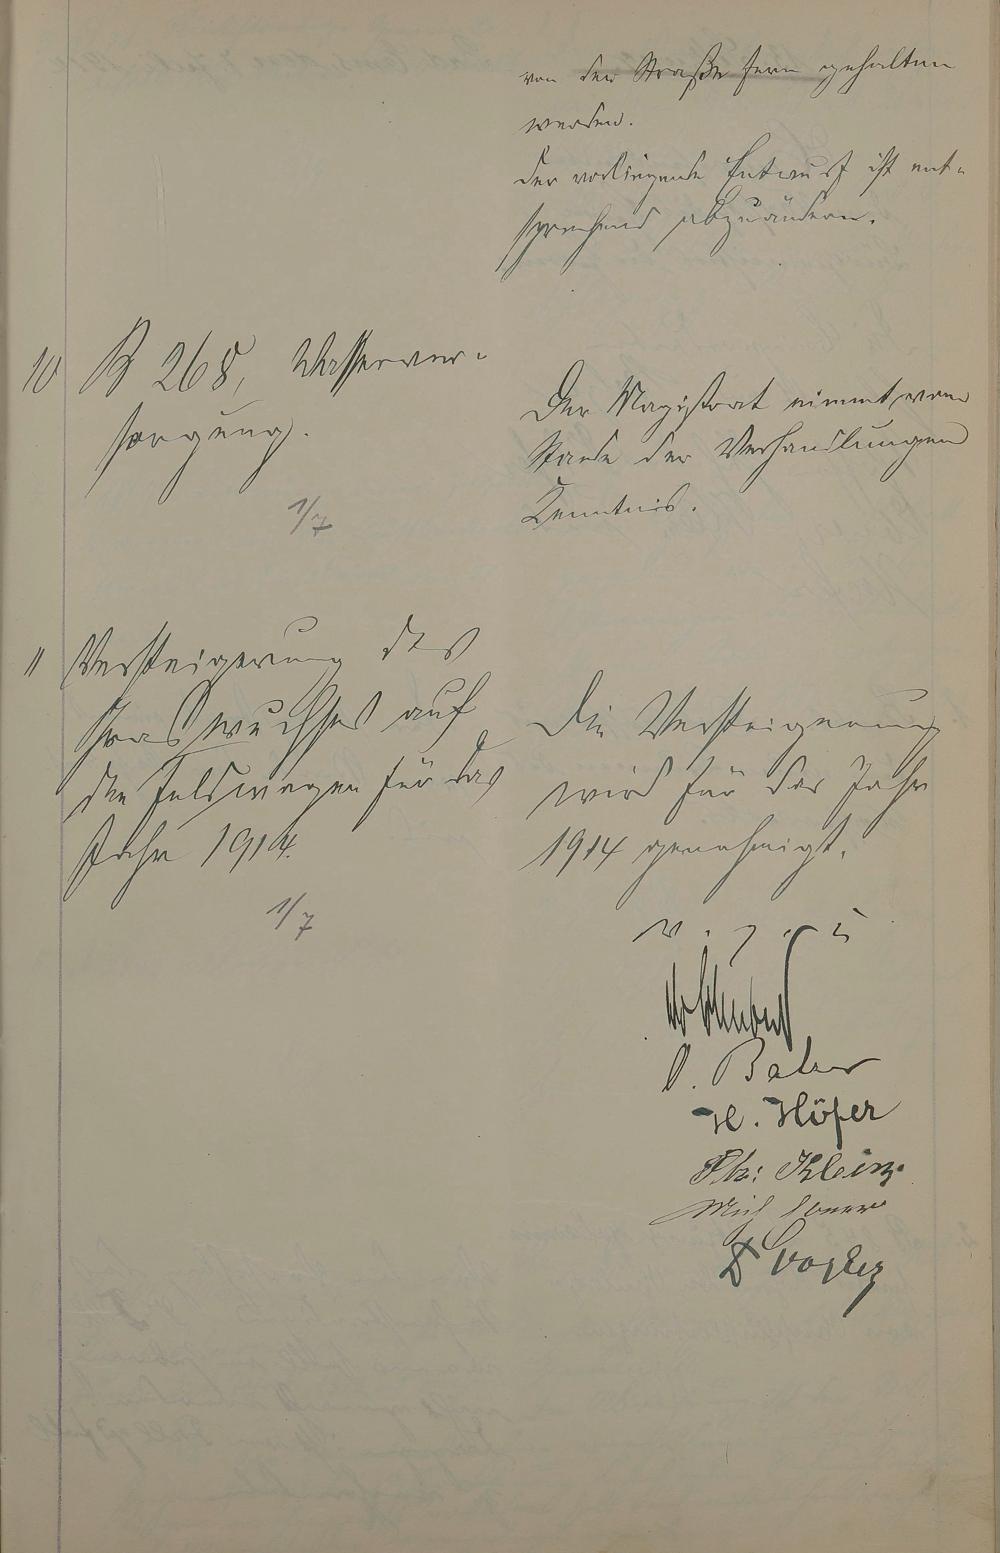 von der Straße fern gehalten
werden.
der vorliegende Entwurf ist ent-
sprechend abzuändern.
10 B 268, Wasserver-
sorgung.
1/7
Der Magistrat nimmt vom
Stande der Verhandlungen
Kenntnis.
11 Versteigerung des
Graswuchses auf
den Feldwegen für das
Jahr 1914.
1/7
Die Versteigerung
wird für das Jahr
1914 genehmigt.
v. g. u.
O. Balzer
H. Höfer
Ph: Klein